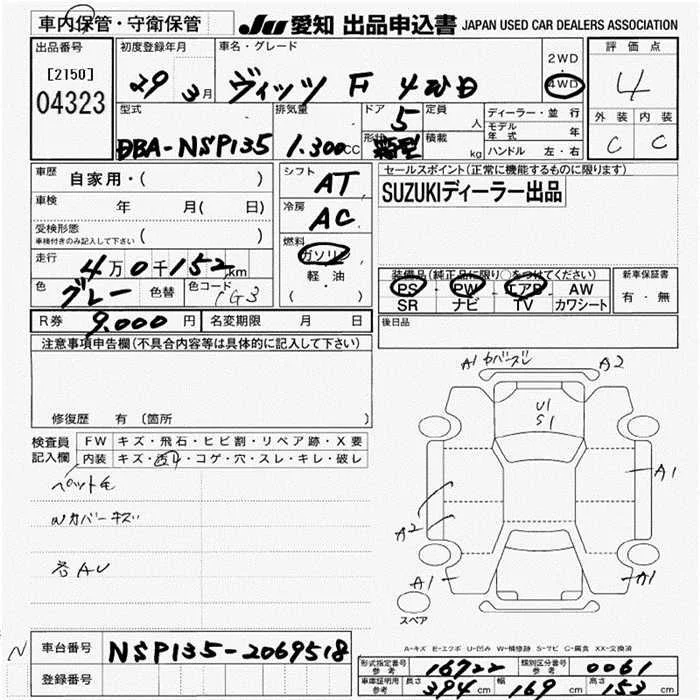 車内保管・守衛保管
JU 愛知 出品申込書 JAPAN USED CAR DEALERS ASSOCIATION
出品番号
[2150]
04323
初度登録年月
29 3月
車名・グレード
ヴィッツ F 4WD
2WD
・
4WD
評価点
4
外装 内装
C C
型式
DBA-NSP135
排気量
1.300cc
ドア
5
形状
定員
人
積載
kg
ディーラー・並行
モデル年式 年
ハンドル 左・右
車歴 自家用・( )
車検 年 月( 日)
受検形態
車検付きのみ記入して下さい ( )
走行 4万0千152km
色 グレー 色替 色コード 1G3
シフト AT
冷房 AC
燃料
ガソリン
軽・油
( )
セールスポイント(正常に機能するものに限ります)
SUZUKIディーラー出品
装備品(純正品に限り○をつけてください)
PS・PW・エアB・AW
SR ナビ TV カワシート
新車保証書
有・無
後日品
R券 9.000円 名変期限 月 日
注意事項申告欄(不具合内容等は具体的に記入して下さい)
修復歴 有 〔箇所
検査員記入欄
FW キズ・飛石・ヒビ割・リペア跡・X要
内装 キズ・汚レ・コゲ・穴・スレ・キレ・破レ
ペット毛
Wカバーキズ
A1 カバーズレ
A2
U1
S1
A1
A2
A1
A1
スペア
A-キズ E-エクボ U-凹み W-補修跡 S-サビ C-腐食 XX-交換済
N
車台番号 NSP135-2069518
登録番号
形式指定番号 参考 16722 類別区分番号 参考 0061
車庫証明用 参考 長さ 394cm 幅 169cm 高さ 153cm